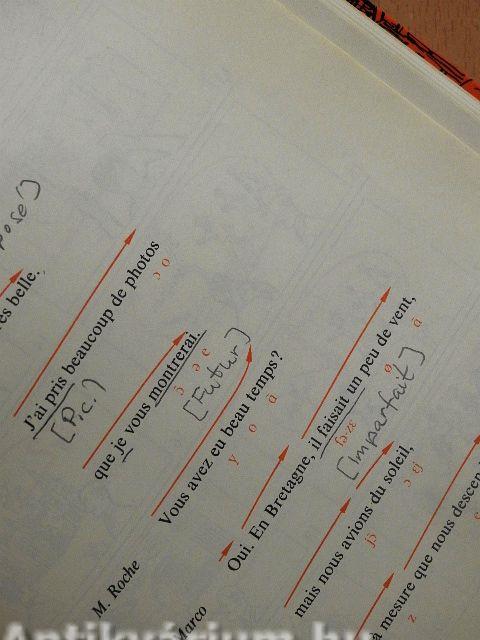 pose]
es belle.
J'ai pris beaucoup de photos
ɔ o
[P.C.]
que je vous montrerai.
ɔ̃ ə e
[Futur]
M. Roche
Vous avez eu beau temps ?
y o ɑ̃
Marco
Oui. En Bretagne, il faisait un peu de vent,
fə-zɛ ø ɑ̃
[Imparfait]
mais nous avions du soleil,
jɔ̃ ɔ ɛj
a mesure que nous descen
z
Antikvárium.hu